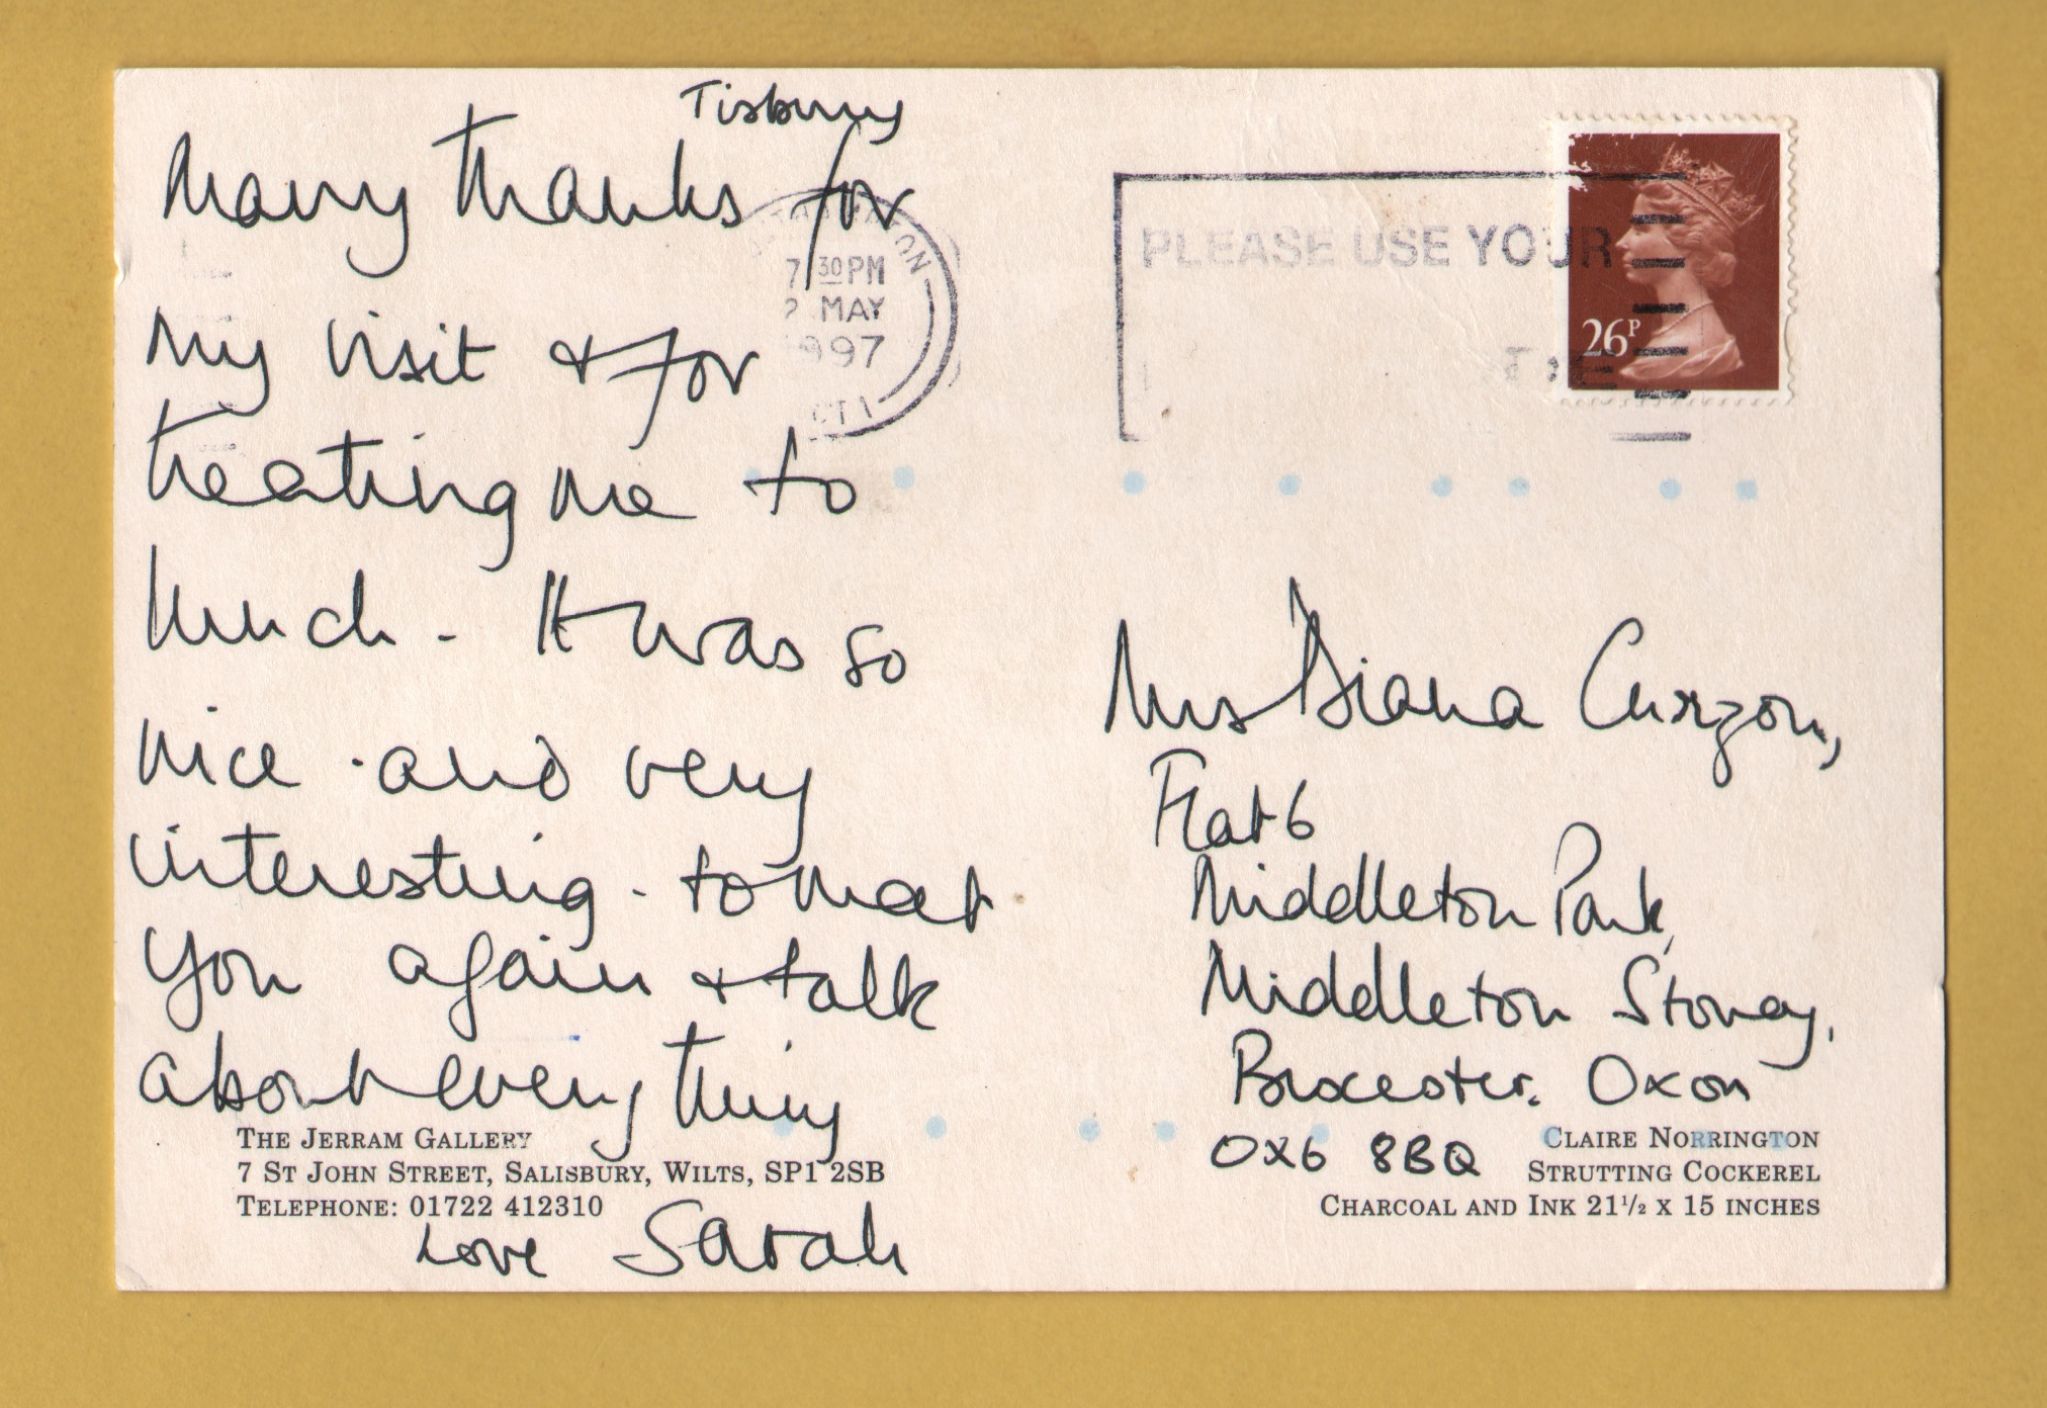 Tisbury
Many thanks for
my visit & for
treating me to
lunch - It was so
nice - and very
interesting - to meet
you again & talk
about everything
THE JERRAM GALLERY
7 ST JOHN STREET, SALISBURY, WILTS, SP1 2SB
TELEPHONE: 01722 412310
Love Sarah
7 30 PM
2 MAY
1997
PLEASE USE YOUR
26P
Mrs Diana Curzon,
Flat 6
Middleton Park,
Middleton Stoney,
Bicester. Oxon
OX6 8BQ
CLAIRE NORRINGTON
STRUTTING COCKEREL
CHARCOAL AND INK 21½ X 15 INCHES